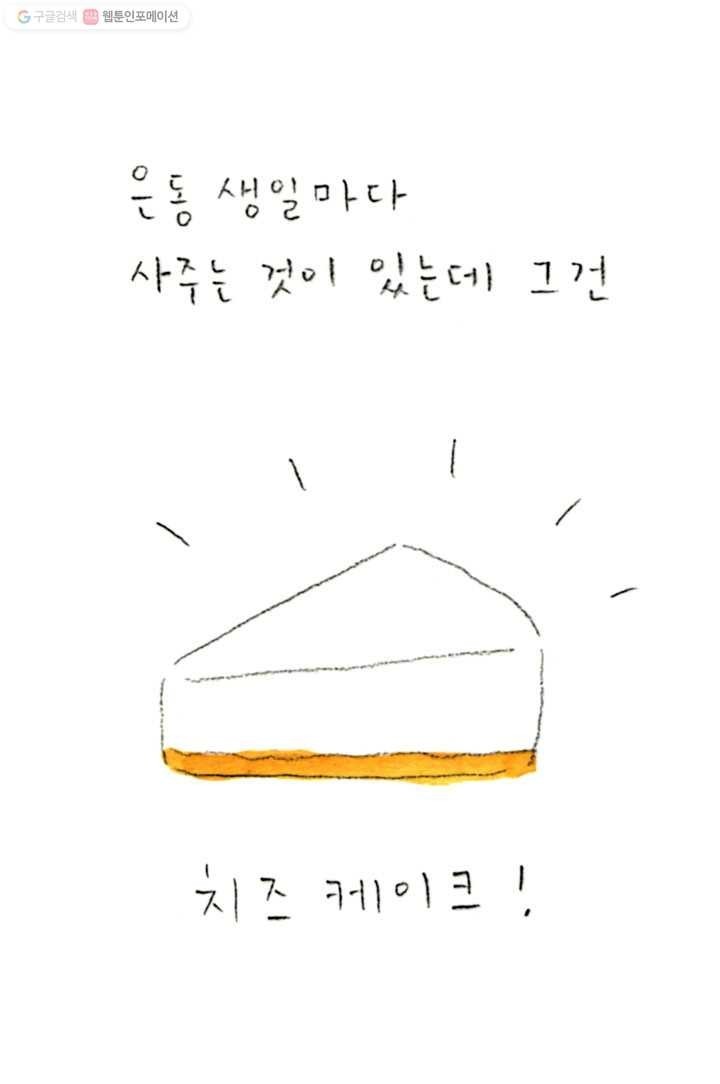 구글검색 웹툰인포메이션
은동 생일마다
사주는 것이 있는데 그건
치즈 케이크!